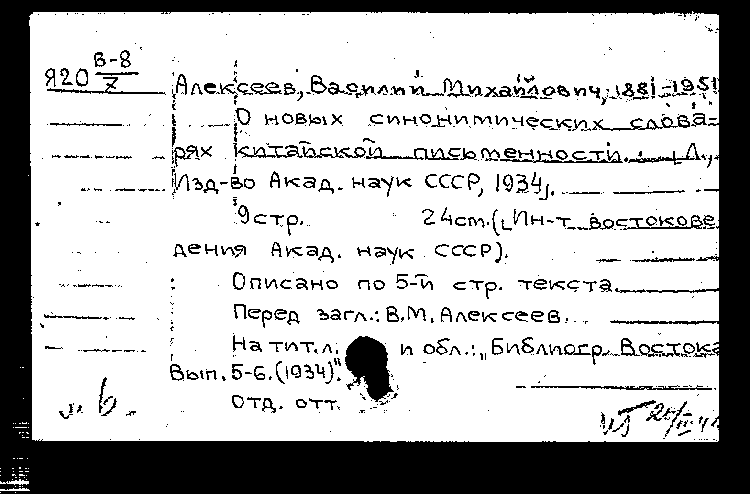 Я20 В-8/7
Алексеев, Василий Михайлович, 1881-1951
О новых синонимических слова-
рях китайской письменности. [Л.,
Изд-во Акад. наук СССР, 1934].
9 стр. 24 cm. ([Ин-т востокове
дения Акад. наук СССР).
Описано по 5-й стр. текста.
Перед загл.: В.М. Алексеев.
На тит. л. и обл.: „Библиогр. Востока
Вып. 5-6. (1934)".
Отд. отт.